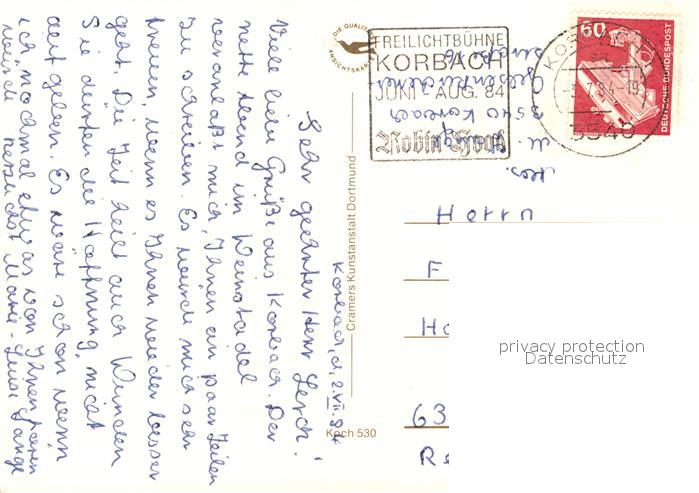 DIE QUALITÄTS
ANSICHTSKARTE
FREILICHTBÜHNE
KORBACH
JUNI - AUG. 84
Robin Hood
KORBACH
-3.7.84-19
3540
60
DEUTSCHE BUNDESPOST
3540 Korbach
Korbach, d. 2. VII. 84
Sehr geehrter Herr Lerch!
Viele liebe Grüße aus Korbach. Der
nette Abend im Weinstadel
veranlaßt mich, Ihnen ein paar Zeilen
zu schreiben. Es würde mich sehr
freuen, wenn es Ihnen wieder besser
geht. Die Zeit heilt auch Wunden
Sie dürfen die Hoffnung nicht
aufgeben. Es wäre schön wenn
ich nochmal etwas von Ihnen hören
würde herzlichst Marie-Luise Lange
Cramers Kunstanstalt Dortmund
Kc h 530
Herrn
F
Ho
63
Re
privacy protection
Datenschutz